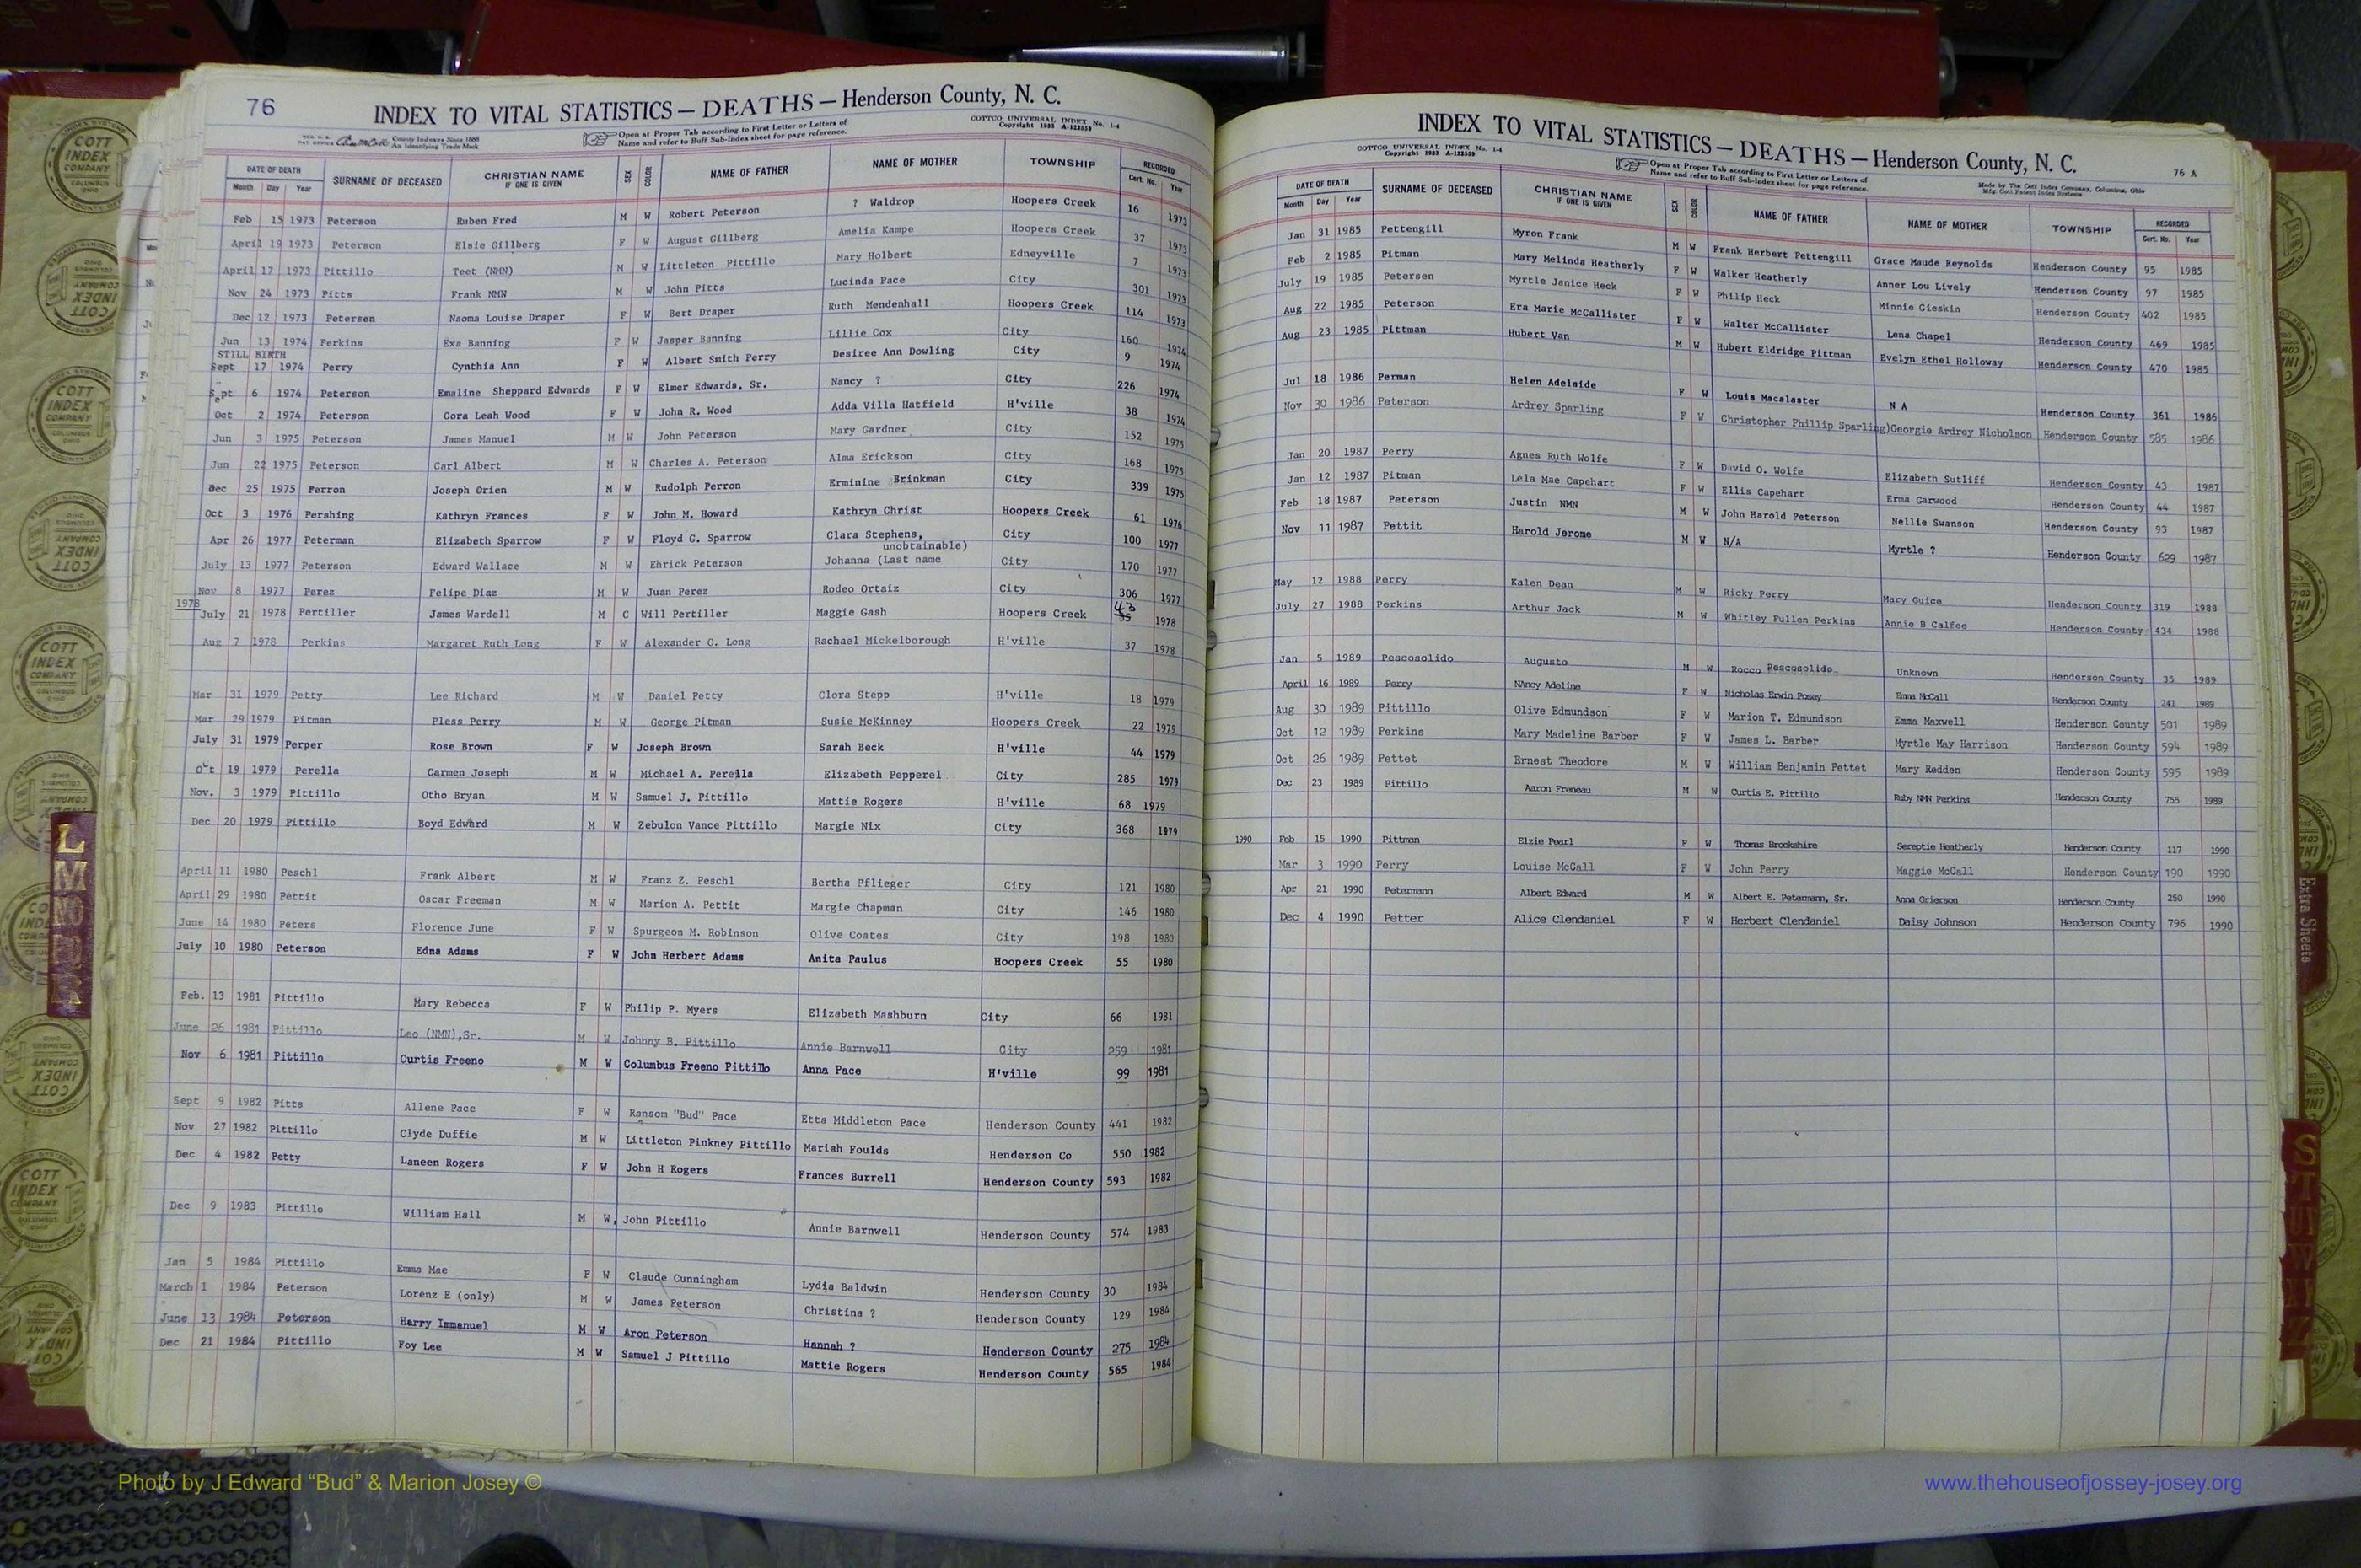 76
INDEX TO VITAL STATISTICS — DEATHS — Henderson County, N. C.
County Indexes Since 1888
An Identifying Trade Mark
Open at Proper Tab according to First Letter or Letters of
Name and refer to Buff Sub-Index sheet for page reference.
COTTCO UNIVERSAL INDEX No. 1-4
Copyright 1933 A-123559
DATE OF DEATH SURNAME OF DECEASED CHRISTIAN NAME SEX COLOR NAME OF FATHER NAME OF MOTHER TOWNSHIP RECORDED
Month Day Year IF ONE IS GIVEN Cert. No. Year
Feb 15 1973 Peterson Ruben Fred M W Robert Peterson ? Waldrop Hoopers Creek 16 1973
April 19 1973 Peterson Elsie Gillberg F W August Gillberg Amelia Kampe Hoopers Creek 37 1973
April 17 1973 Pittillo Teet (NMN) M W Littleton Pittillo Mary Holbert Edneyville 7 1973
Nov 24 1973 Pitts Frank NMN M W John Pitts Lucinda Pace City 301 1973
Dec 12 1973 Petersen Naoma Louise Draper F W Bert Draper Ruth Mendenhall Hoopers Creek 114 1973
Jun 13 1974 Perkins Exa Banning F W Jasper Banning Lillie Cox City 160 1974
STILL BIRTH
Sept 17 1974 Perry Cynthia Ann F W Albert Smith Perry Desiree Ann Dowling City 9 1974
Sept 6 1974 Peterson Emaline Sheppard Edwards F W Elmer Edwards, Sr. Nancy ? City 226 1974
Oct 2 1974 Peterson Cora Leah Wood F W John R. Wood Adda Villa Hatfield H'ville 38 1974
Jun 3 1975 Peterson James Manuel M W John Peterson Mary Gardner City 152 1975
Jun 22 1975 Peterson Carl Albert M W Charles A. Peterson Alma Erickson City 168 1975
Dec 25 1975 Perron Joseph Orien M W Rudolph Perron Erminine Brinkman City 339 1975
Oct 3 1976 Pershing Kathryn Frances F W John M. Howard Kathryn Christ Hoopers Creek 61 1976
Apr 26 1977 Peterman Elizabeth Sparrow F W Floyd G. Sparrow Clara Stephens, City 100 1977
unobtainable)
July 13 1977 Peterson Edward Wallace M W Ehrick Peterson Johanna (Last name City 170 1977
Nov 8 1977 Perez Felipe Diaz M W Juan Perez Rodeo Ortaiz City 306 1977
1978
July 21 1978 Pertiller James Wardell M C Will Pertiller Maggie Gash Hoopers Creek 43 1978
Aug 7 1978 Perkins Margaret Ruth Long F W Alexander C. Long Rachael Mickelborough H'ville 37 1978
Mar 31 1979 Petty Lee Richard M W Daniel Petty Clora Stepp H'ville 18 1979
Mar 29 1979 Pitman Pless Perry M W George Pitman Susie McKinney Hoopers Creek 22 1979
July 31 1979 Perper Rose Brown F W Joseph Brown Sarah Beck H'ville 44 1979
Oct 19 1979 Perella Carmen Joseph M W Michael A. Perella Elizabeth Pepperel City 285 1979
Nov. 3 1979 Pittillo Otho Bryan M W Samuel J. Pittillo Mattie Rogers H'ville 68 1979
Dec 20 1979 Pittillo Boyd Edward M W Zebulon Vance Pittillo Margie Nix City 368 1979
April 11 1980 Peschl Frank Albert M W Franz Z. Peschl Bertha Pflieger City 121 1980
April 29 1980 Pettit Oscar Freeman M W Marion A. Pettit Margie Chapman City 146 1980
June 14 1980 Peters Florence June F W Spurgeon M. Robinson Olive Coates City 198 1980
July 10 1980 Peterson Edna Adams F W John Herbert Adams Anita Paulus Hoopers Creek 55 1980
Feb. 13 1981 Pittillo Mary Rebecca F W Philip P. Myers Elizabeth Mashburn City 66 1981
June 26 1981 Pittillo Leo (NMN),Sr. M W Johnny B. Pittillo Annie Barnwell City 259 1981
Nov 6 1981 Pittillo Curtis Freeno M W Columbus Freeno Pittillo Anna Pace H'ville 99 1981
Sept 9 1982 Pitts Allene Pace F W Ransom "Bud" Pace Etta Middleton Pace Henderson County 441 1982
Nov 27 1982 Pittillo Clyde Duffie M W Littleton Pinkney Pittillo Mariah Foulds Henderson Co 550 1982
Dec 4 1982 Petty Laneen Rogers F W John H Rogers Frances Burrell Henderson County 593 1982
Dec 9 1983 Pittillo William Hall M W, John Pittillo Annie Barnwell Henderson County 574 1983
Jan 5 1984 Pittillo Emma Mae F W Claude Cunningham Lydia Baldwin Henderson County 30 1984
March 1 1984 Peterson Lorenz E (only) M W James Peterson Christina ? Henderson County 129 1984
June 13 1984 Peterson Harry Immanuel M W Aron Peterson Hannah ? Henderson County 275 1984
Dec 21 1984 Pittillo Foy Lee M W Samuel J Pittillo Mattie Rogers Henderson County 565 1984
INDEX TO VITAL STATISTICS — DEATHS — Henderson County, N. C.
COTTCO UNIVERSAL INDEX No. 1-4
Copyright 1933 A-123559
Open at Proper Tab according to First Letter or Letters of
Name and refer to Buff Sub-Index sheet for page reference.
Made by The Cott Index Company, Columbus, Ohio
Mfg. Cott Patent Index Systems
76 A
DATE OF DEATH SURNAME OF DECEASED CHRISTIAN NAME SEX COLOR NAME OF FATHER NAME OF MOTHER TOWNSHIP RECORDED
Month Day Year IF ONE IS GIVEN Cert. No. Year
Jan 31 1985 Pettengill Myron Frank M W Frank Herbert Pettengill Grace Maude Reynolds Henderson County 95 1985
Feb 2 1985 Pitman Mary Melinda Heatherly F W Walker Heatherly Anner Lou Lively Henderson County 97 1985
July 19 1985 Petersen Myrtle Janice Heck F W Philip Heck Minnie Gieskin Henderson County 402 1985
Aug 22 1985 Peterson Era Marie McCallister F W Walter McCallister Lena Chapel Henderson County 469 1985
Aug 23 1985 Pittman Hubert Van M W Hubert Eldridge Pittman Evelyn Ethel Holloway Henderson County 470 1985
Jul 18 1986 Perman Helen Adelaide F W Louis Macalaster N A Henderson County 361 1986
Nov 30 1986 Peterson Ardrey Sparling F W Christopher Phillip Sparling)Georgie Ardrey Nicholson Henderson County 585 1986
Jan 20 1987 Perry Agnes Ruth Wolfe F W David O. Wolfe Elizabeth Sutliff Henderson County 43 1987
Jan 12 1987 Pitman Lela Mae Capehart F W Ellis Capehart Erma Garwood Henderson County 44 1987
Feb 18 1987 Peterson Justin NMN M W John Harold Peterson Nellie Swanson Henderson County 93 1987
Nov 11 1987 Pettit Harold Jerome M W N/A Myrtle ? Henderson County 629 1987
May 12 1988 Perry Kalen Dean M W Ricky Perry Mary Guice Henderson County 319 1988
July 27 1988 Perkins Arthur Jack M W Whitley Fullen Perkins Annie B Calfee Henderson County 434 1988
Jan 5 1989 Pescosolido Augusto M W Rocco Pescosolido Unknown Henderson County 35 1989
April 16 1989 Perry NAncy Adeline F W Nicholas Erwin Posey Emma McCall Henderson County 241 1989
Aug 30 1989 Pittillo Olive Edmundson F W Marion T. Edmundson Emma Maxwell Henderson County 501 1989
Oct 12 1989 Perkins Mary Madeline Barber F W James L. Barber Myrtle May Harrison Henderson County 594 1989
Oct 26 1989 Pettet Ernest Theodore M W William Benjamin Pettet Mary Redden Henderson County 595 1989
Dec 23 1989 Pittillo Aaron Freneau M W Curtis E. Pittillo Ruby NMN Perkins Henderson County 755 1989
1990 Feb 15 1990 Pittman Elzie Pearl F W Thomas Brookshire Sereptie Heatherly Henderson County 117 1990
Mar 3 1990 Perry Louise McCall F W John Perry Maggie McCall Henderson County 190 1990
Apr 21 1990 Petermann Albert Edward M W Albert E. Petermann, Sr. Anna Grierson Henderson County 250 1990
Dec 4 1990 Petter Alice Clendaniel F W Herbert Clendaniel Daisy Johnson Henderson County 796 1990
Extra Sheets
Photo by J Edward “Bud” & Marion Josey ©
www.thehouseofjossey-josey.org